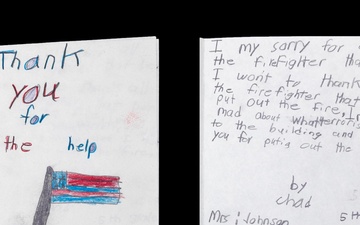 Thank
you
for
the help
I my sorry for
the firefighter tha
I wont to thank
the firefighter that
put out the fire, I
mad about what terroris
to the building and
you for putig out the
by
chad
Mrs. Johnson 5th